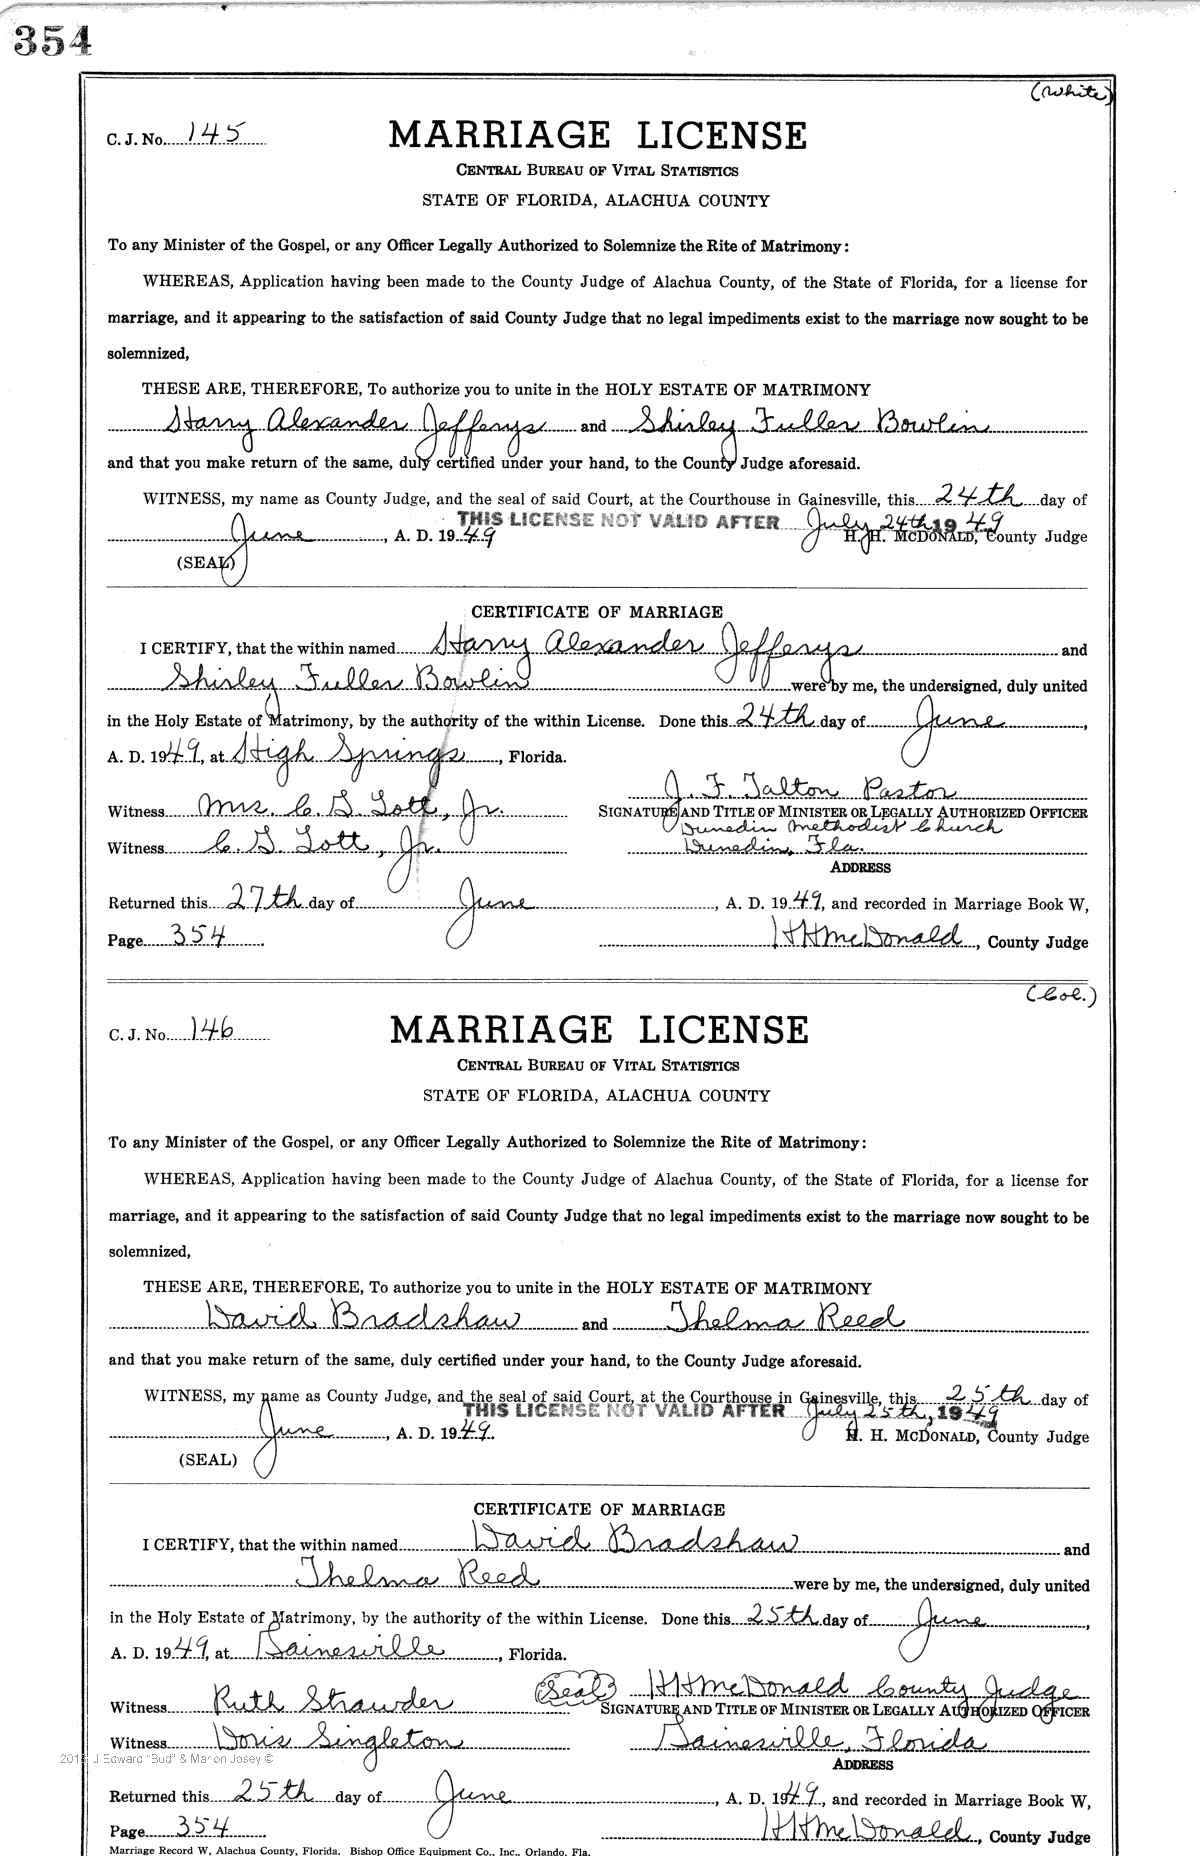 354
(White)
C. J. No. 145
MARRIAGE LICENSE
CENTRAL BUREAU OF VITAL STATISTICS
STATE OF FLORIDA, ALACHUA COUNTY
To any Minister of the Gospel, or any Officer Legally Authorized to Solemnize the Rite of Matrimony:
WHEREAS, Application having been made to the County Judge of Alachua County, of the State of Florida, for a license for
marriage, and it appearing to the satisfaction of said County Judge that no legal impediments exist to the marriage now sought to be
solemnized,
THESE ARE, THEREFORE, To authorize you to unite in the HOLY ESTATE OF MATRIMONY
Harry Alexander Jefferys and Shirley Fuller Bowlin
and that you make return of the same, duly certified under your hand, to the County Judge aforesaid.
WITNESS, my name as County Judge, and the seal of said Court, at the Courthouse in Gainesville, this 24th day of
THIS LICENSE NOT VALID AFTER July 24th 1949
June, A. D. 1949 H. H. MCDONALD, County Judge
(SEAL)
CERTIFICATE OF MARRIAGE
I CERTIFY, that the within named Harry Alexander Jefferys and
Shirley Fuller Bowlin were by me, the undersigned, duly united
in the Holy Estate of Matrimony, by the authority of the within License. Done this 24th day of June,
A. D. 1949, at High Springs, Florida.
J. F. Talton Pastor
Witness Mrs. C. G. Lott, Jr. SIGNATURE AND TITLE OF MINISTER OR LEGALLY AUTHORIZED OFFICER
Dunedin Methodist Church
Witness C. G. Lott, Jr. Dunedin, Fla.
ADDRESS
Returned this 27th day of June, A. D. 1949, and recorded in Marriage Book W,
Page 354 HHMcDonald, County Judge
(Col.)
C. J. No. 146
MARRIAGE LICENSE
CENTRAL BUREAU OF VITAL STATISTICS
STATE OF FLORIDA, ALACHUA COUNTY
To any Minister of the Gospel, or any Officer Legally Authorized to Solemnize the Rite of Matrimony:
WHEREAS, Application having been made to the County Judge of Alachua County, of the State of Florida, for a license for
marriage, and it appearing to the satisfaction of said County Judge that no legal impediments exist to the marriage now sought to be
solemnized,
THESE ARE, THEREFORE, To authorize you to unite in the HOLY ESTATE OF MATRIMONY
David Bradshaw and Thelma Reed
and that you make return of the same, duly certified under your hand, to the County Judge aforesaid.
WITNESS, my name as County Judge, and the seal of said Court, at the Courthouse in Gainesville, this 25th day of
THIS LICENSE NOT VALID AFTER July 25th, 1949
June, A. D. 1949. H. H. MCDONALD, County Judge
(SEAL)
CERTIFICATE OF MARRIAGE
I CERTIFY, that the within named David Bradshaw and
Thelma Reed were by me, the undersigned, duly united
in the Holy Estate of Matrimony, by the authority of the within License. Done this 25th day of June,
A. D. 1949, at Gainesville, Florida.
(Seal) HHMcDonald County Judge
Witness Ruth Strawder SIGNATURE AND TITLE OF MINISTER OR LEGALLY AUTHORIZED OFFICER
Witness Doris Singleton Gainesville, Florida
J Edward "Bud" & Marion Josey ©
ADDRESS
Returned this 25th day of June, A. D. 1949, and recorded in Marriage Book W,
Page 354 HHMcDonald, County Judge
Marriage Record W, Alachua County, Florida. Bishop Office Equipment Co., Inc., Orlando, Fla.